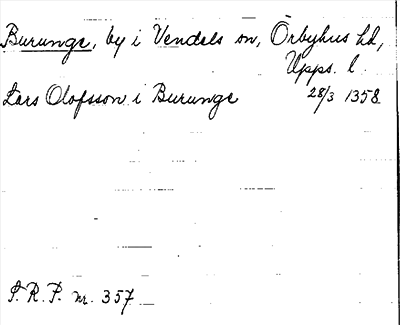 Burunge, by i Vendels sn, Örbyhus hd,
Upps. l.
Lars Olofsson i Burunge 28/3 1358
S. R. P. nr. 357